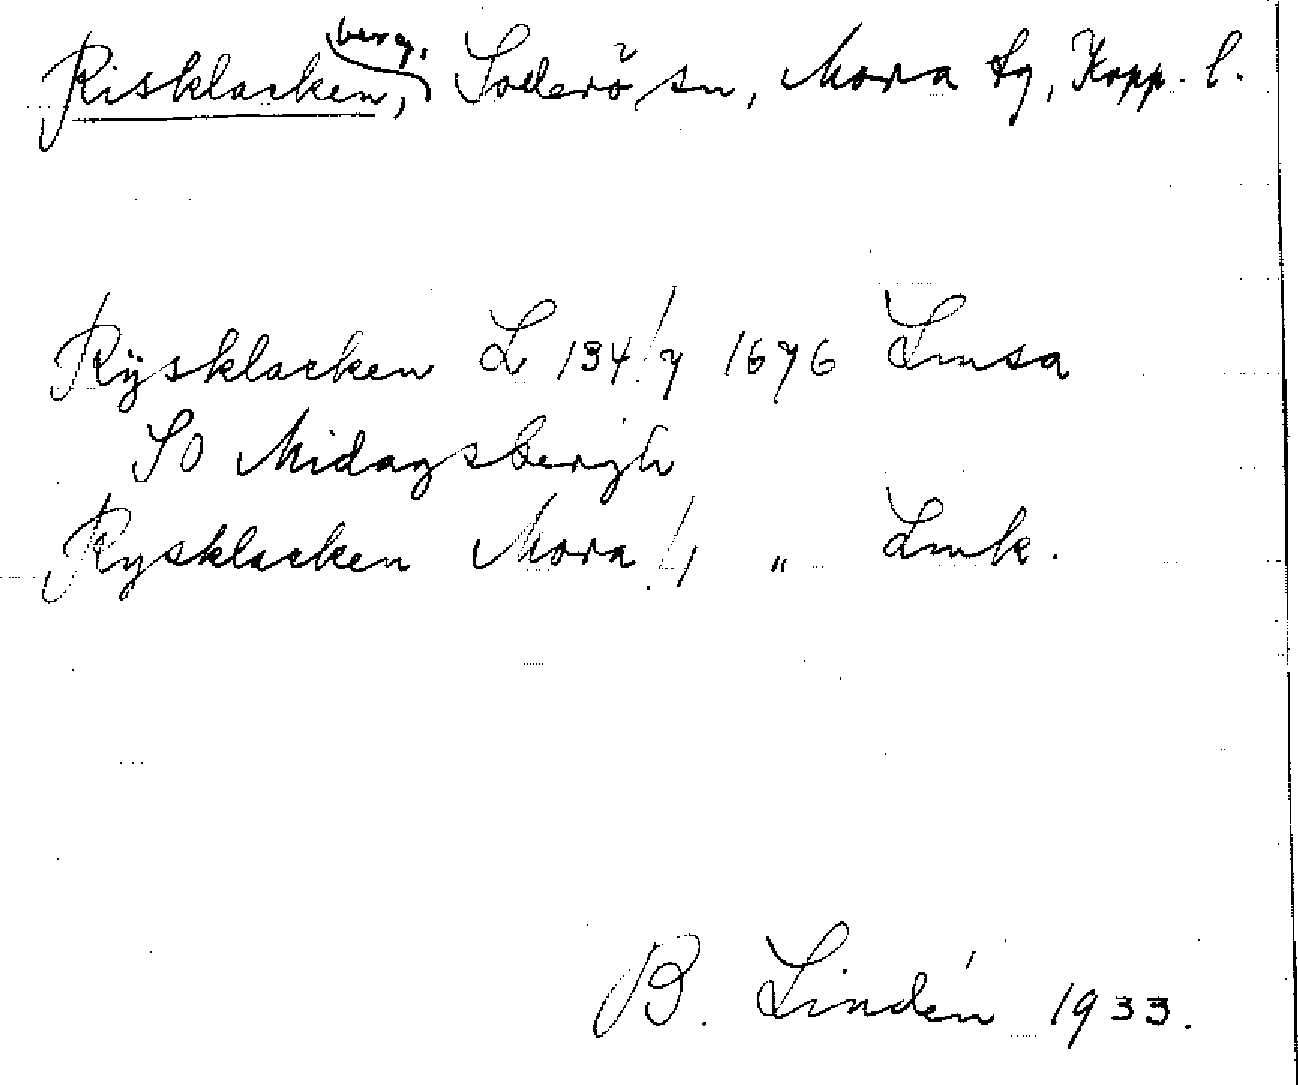 Risklacken, berg, Sollerö sn, Mora tg, Kopp. l.
Rÿsklacken L 134:/7 1676 Lmsa
SO Midagsbergh
Rysklacken Mora :/1 " Lmk.
B. Lindén 1933.